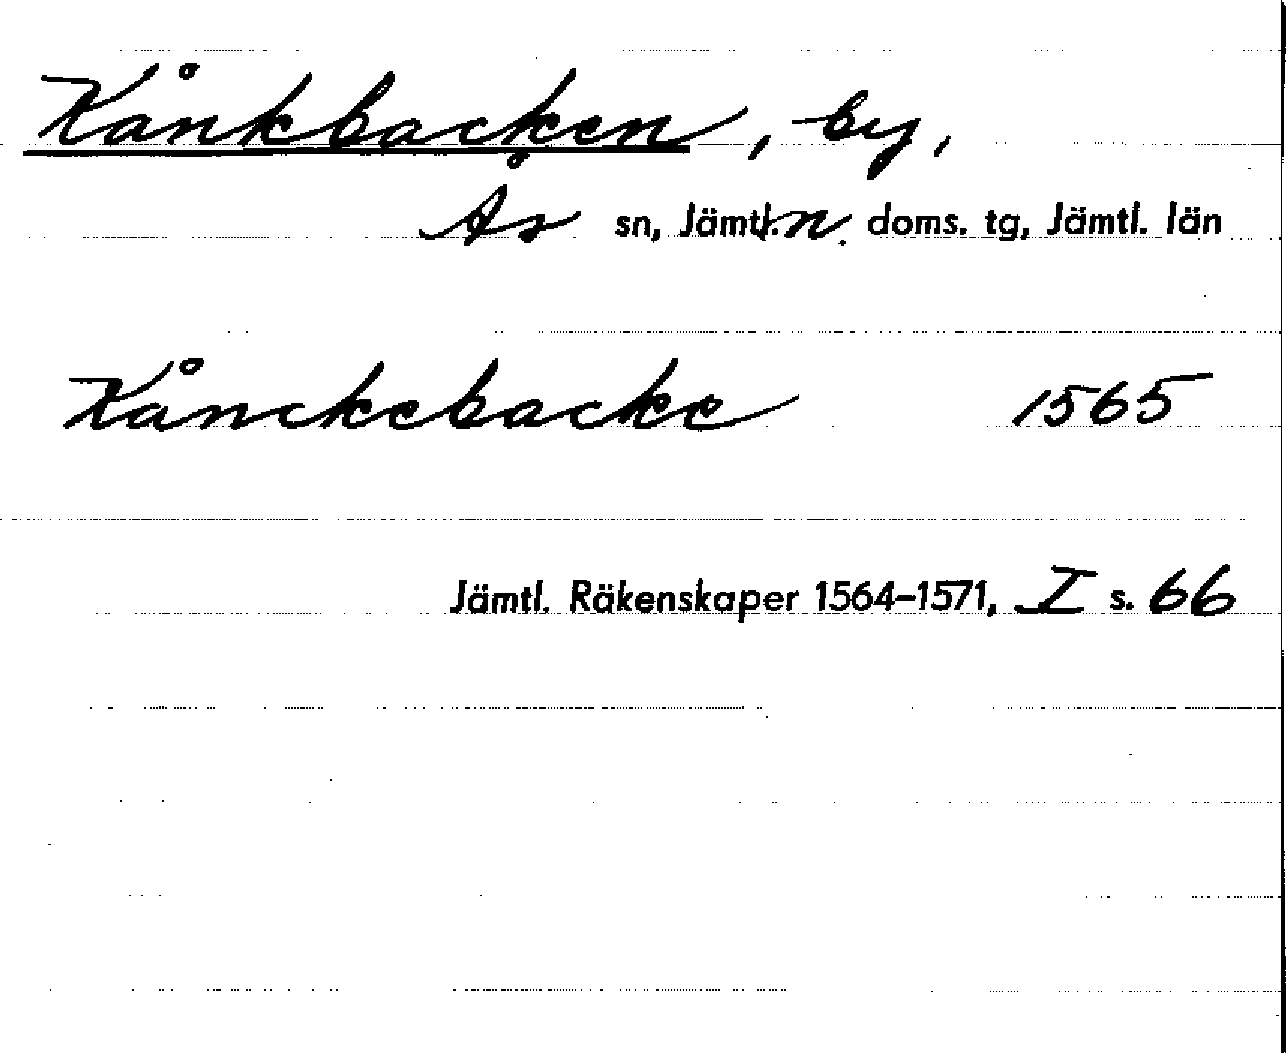 Kånkbacken, by,
Ås sn, Jämtl. n. doms. tg, Jämtl. län
Kånckebacke 1565
Jämtl. Räkenskaper 1564–1571, I s. 66